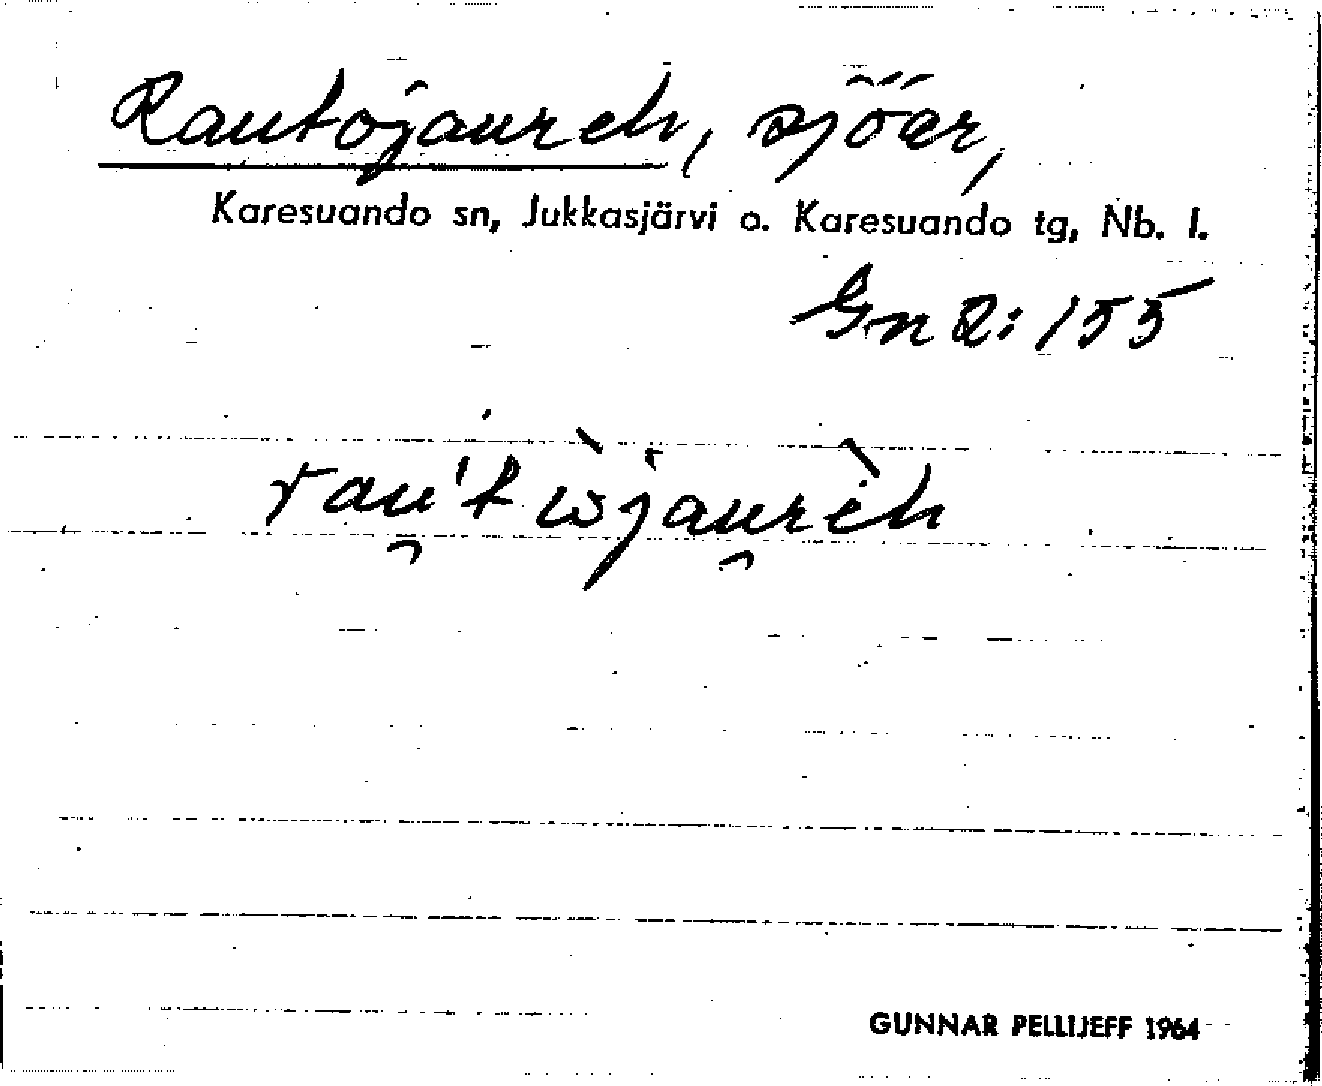 Rautojaureh, sjöar,
Karesuando sn, Jukkasjärvi o. Karesuando tg, Nb. l.
Gn R: 155
rau̯'tὼjau̯rὲh
GUNNAR PELLIJEFF 1964